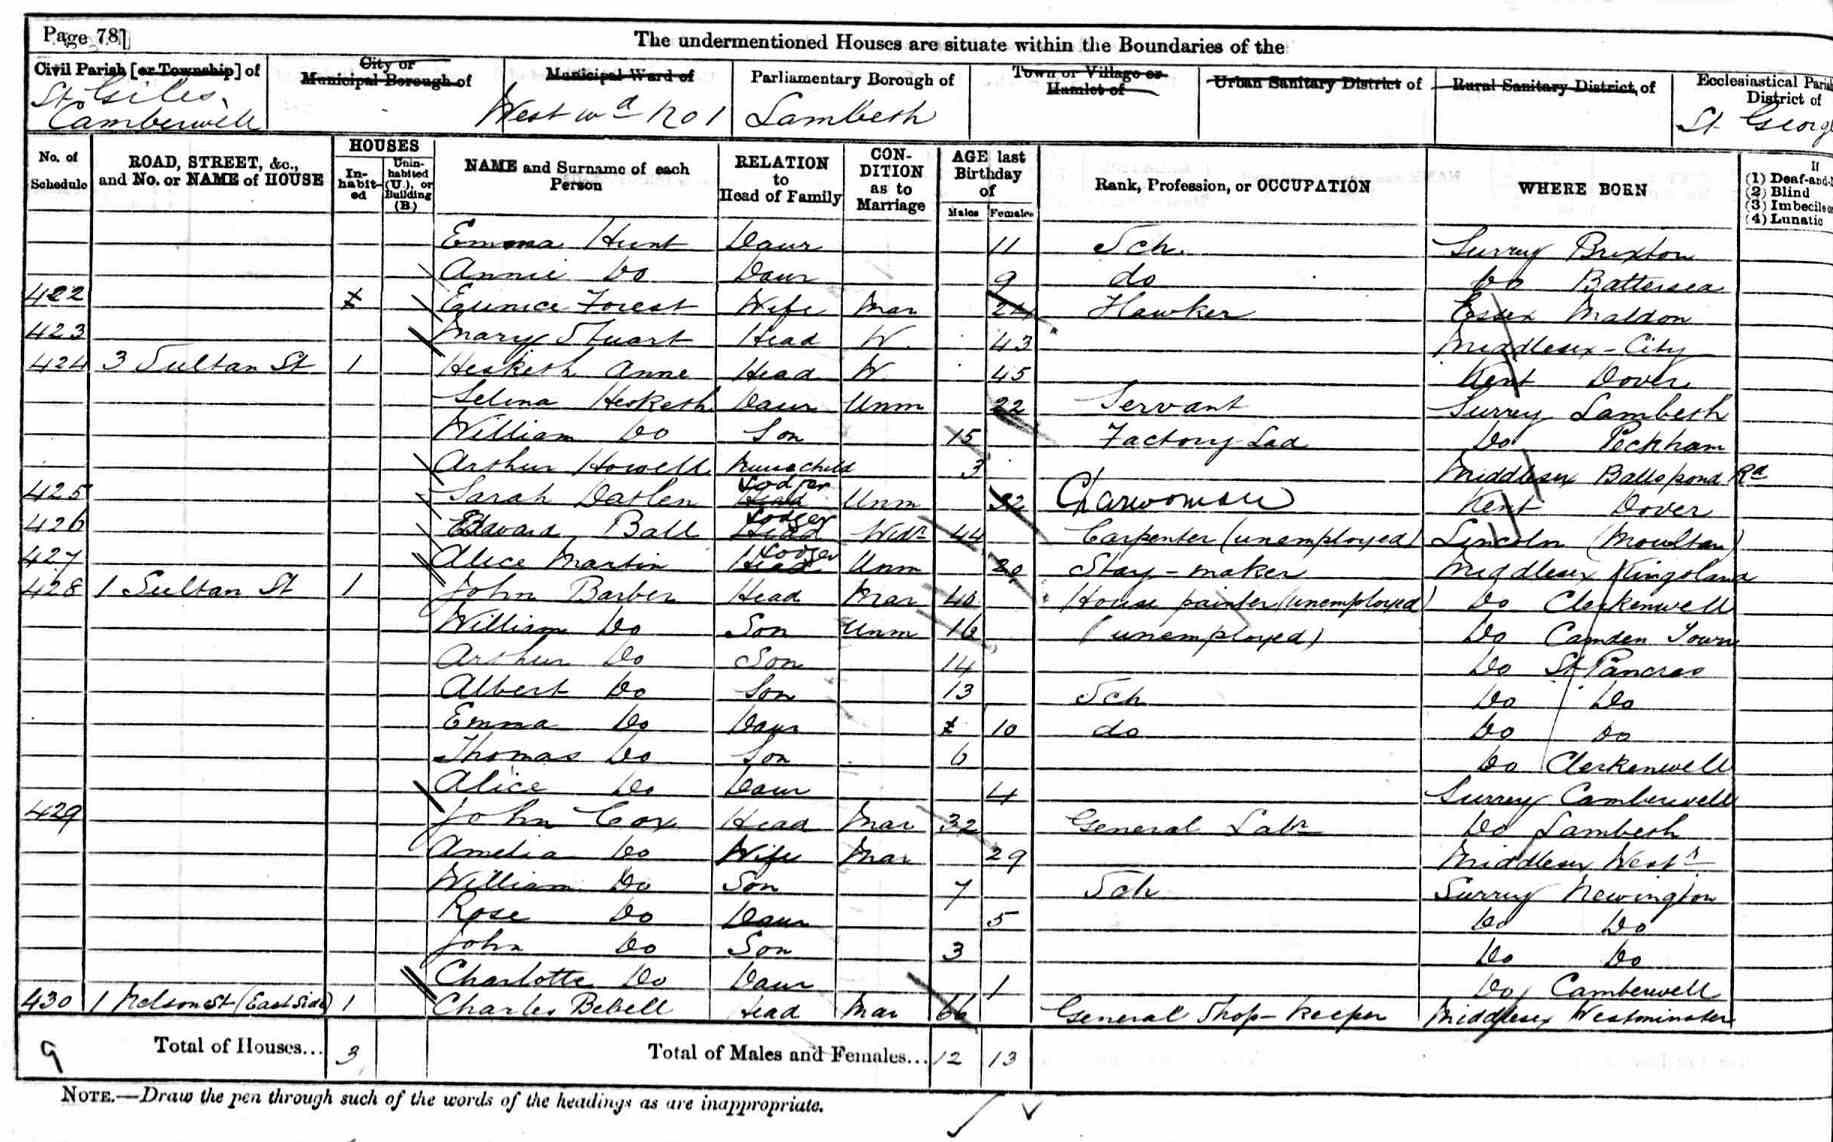 Page 78]
The undermentioned Houses are situate within the Boundaries of the
Civil Parish [or Township] of
City or Municipal Borough of
Municipal Ward of
Parliamentary Borough of
Town or Village or Hamlet of
Urban Sanitary District of
Rural Sanitary District, of
Ecclesiastical Parish District of
St Giles Camberwell West Wd No 1 Lambeth St Georg
No. of Schedule
ROAD, STREET, &c., and No. or NAME of HOUSE
HOUSES
In-habit-ed
Unin-habited (U.), or Building (B.)
NAME and Surname of each Person
RELATION to Head of Family
CON-DITION as to Marriage
AGE last Birthday of
Males Females
Rank, Profession, or OCCUPATION
WHERE BORN
If
(1) Deaf-and-D
(2) Blind
(3) Imbecile or
(4) Lunatic
Emma Hunt Daur 11 Sch. Surrey Brixton
Annie Do Daur 9 do Do Battersea
422 Eunice Forest Wife Mar 24 Hawker Essex Maldon
423 Mary Stuart Head W. 43 Middlesex - City
424 3 Sultan St 1 Hesketh Anne Head W. 45 Kent Dover
Selina Hesketh Daur Unm 22 Servant Surrey Lambeth
William Do Son 15 Factory Lad Do Peckham
Arthur Howell Nurse child 3 Middlesex Balls pond Rd
425 Sarah Darlen Head Lodger Unm 32 Charwoman Kent Dover
426 Edward Ball Head Lodger Widr 44 Carpenter (unemployed) Lincoln (Moultan)
427 Alice Martin Head Lodger Unm 20 Stay-maker Middlesex Kingsland
428 1 Sultan St 1 John Barber Head Mar 40 House painter (unemployed) Do Clerkenwell
William Do Son Unm 16 (unemployed) Do Camden Town
Arthur Do Son 14 Do St Pancras
Albert Do Son 13 Sch Do Do
Emma Do Daur 10 do Do Do
Thomas Do Son 6 Do Clerkenwell
Alice Do Daur 4 Surrey Camberwell
429 John Cox Head Mar 32 General Labr Do Lambeth
Amelia Do Wife Mar 29 Middlesex Westr
William Do Son 7 Sch Surrey Newington
Rose Do Daur 5 Do Do
John Do Son 3 Do Do
Charlotte Do Daur 1 Do Camberwell
430 1 Nelson St (East Side) 1 Charles Bebell Head Mar 66 General Shop-keeper Middlesex Westminster
9 Total of Houses... 3 Total of Males and Females... 12 13
NOTE.—Draw the pen through such of the words of the headings as are inappropriate.